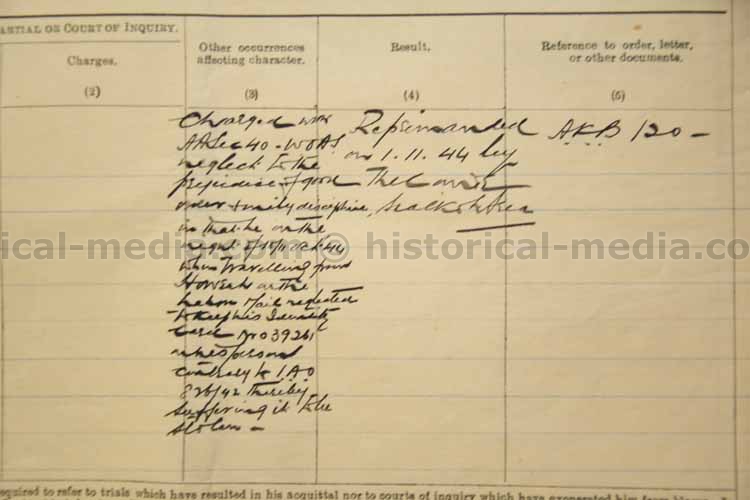 ARTIAL OR COURT OF INQUIRY.
Charges.
(2)
Other occurrences
affecting character.
(3)
Charged with
AA Sec 40 - WOAS
neglect to the
prejudice of good
order & mily discipline,
in that he on the
night of Oct 44
when travelling from
Howrah on the
Lahore Mail neglected
to keep his Identity
Card No 039261
on his person
contrary to IAO
826/42 thereby
suffering it to be
stolen -
Result.
(4)
Reprimanded
on 1.11.44 by
The
Sialkot Area
Reference to order, letter,
or other documents.
(5)
AKB 120 -
ical-media. © historical-media.com
equired to refer to trials which have resulted in his acquittal nor to courts of inquiry which have exonerated him from